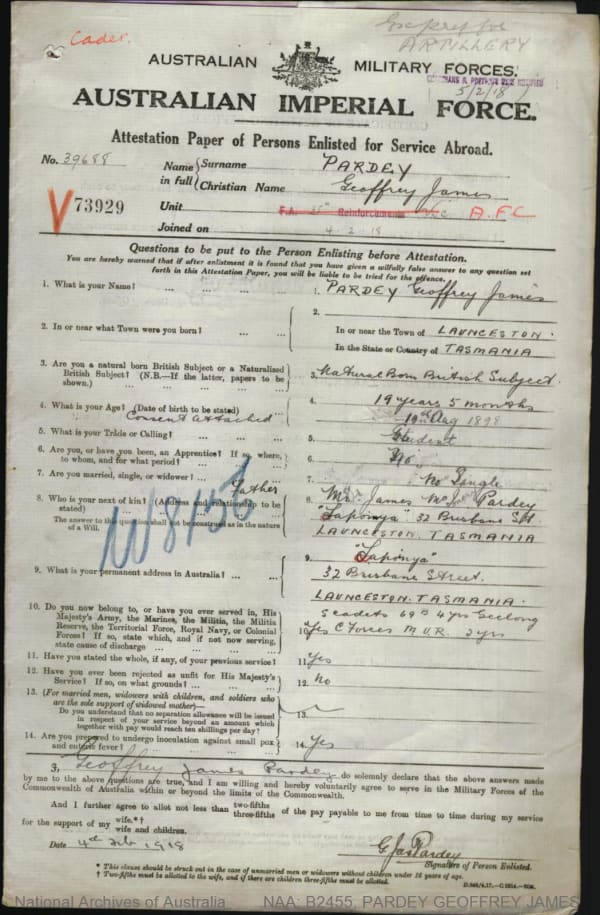 Cadet.
ARTILLERY
AUSTRALIAN MILITARY FORCES.
5/2/18
AUSTRALIAN IMPERIAL FORCE.
Attestation Paper of Persons Enlisted for Service Abroad.
No. 39688
Name in full { Surname PARDEY
Christian Name Geoffrey James
V73929
Unit F.A. Reinforcements Vic A.F.C
Joined on 4 2 18
Questions to be put to the Person Enlisting before Attestation.
You are hereby warned that if after enlistment it is found that you have given a wilfully false answer to any question set
forth in this Attestation Paper, you will be liable to be tried for the offence.
1. What is your Name? ... ... ... 1. PARDEY Geoffrey James
2. In or near what Town were you born? ... 2. In or near the Town of LAUNCESTON.
In the State or Country of TASMANIA
3. Are you a natural born British Subject or a Naturalised
British Subject? (N.B.—If the latter, papers to be
shown.) ... ... ... 3. Natural Born British Subject.
4. What is your Age? (Date of birth to be stated) 4. 19 years 5 months
Consent Attached 19th Aug 1898
5. What is your Trade or Calling? ... ... 5. Student
6. Are you, or have you been, an Apprentice? If so, where,
to whom, and for what period? ... ... 6. No.
7. Are you married, single, or widower? ... 7. No Single
Father
8. Who is your next of kin? (Address and relationship to be
stated) ... ... 8. Mr James Pardey
"Laponya" 32 Brisbane St
The answer to this question shall not be construed as in the nature
of a Will.
LAUNCESTON. TASMANIA
W8153
9. What is your permanent address in Australia? ... ... 9. "Laponya"
32 Brisbane Street.
LAUNCESTON. TASMANIA.
10. Do you now belong to, or have you ever served in, His
Majesty's Army, the Marines, the Militia, the Militia
Reserve, the Territorial Force, Royal Navy, or Colonial
Forces? If so, state which, and if not now serving,
state cause of discharge ... ... ...
S cadets 69th 4 yrs Geelong
10. Yes C Forces M.U.R. 2yrs
11. Have you stated the whole, if any, of your previous service? 11. Yes
12. Have you ever been rejected as unfit for His Majesty's
Service? If so, on what grounds? ... ... 12. No
13. (For married men, widowers with children, and soldiers who
are the sole support of widowed mother)—
Do you understand that no separation allowance will be issued
in respect of your service beyond an amount which
together with pay would reach ten shillings per day?
13.
14. Are you prepared to undergo inoculation against small pox
and enteric fever? ... ... ... 14. Yes
I, Geoffrey James Pardey do solemnly declare that the above answers made
by me to the above questions are true, and I am willing and hereby voluntarily agree to serve in the Military Forces of the
Commonwealth of Australia within or beyond the limits of the Commonwealth.
And I further agree to allot not less than two-fifths three-fifths of the pay payable to me from time to time during my service
for the support of my wife.*†
wife and children.
Date 4th Feb 1918
G Jas Pardey
Signature of Person Enlisted.
* This clause should be struck out in the case of unmarried men or widowers without children under 16 years of age.
† Two-fifths must be allotted to the wife, and if there are children three-fifths must be allotted.
National Archives of Australia NAA: B2455, PARDEY GEOFFREY JAMES